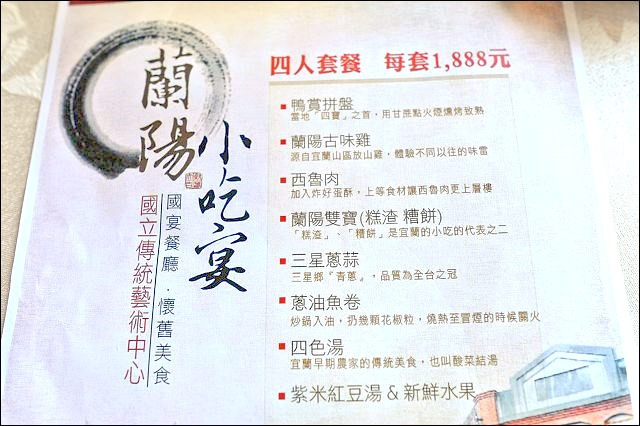 蘭陽
小吃宴
國宴餐廳．懷舊美食
國立傳統藝術中心
四人套餐 每套1,888元
鴨賞拼盤
當地「四寶」之首，用甘蔗點火煙燻烤致熟
蘭陽古味雞
源自宜蘭山區放山雞，體驗不同以往的味雷
西魯肉
加入炸好蛋酥，上等食材讓西魯肉更上層樓
蘭陽雙寶(糕渣 糟餅)
「糕渣」、「糟餅」是宜蘭的小吃的代表之二
三星蔥蒜
三星鄉『青蔥』，品質為全台之冠
蔥油魚卷
炒鍋入油，扔幾顆花椒粒，燒熱至冒煙的時候關火
四色湯
宜蘭早期農家的傳統美食，也叫酸菜結湯
紫米紅豆湯 & 新鮮水果